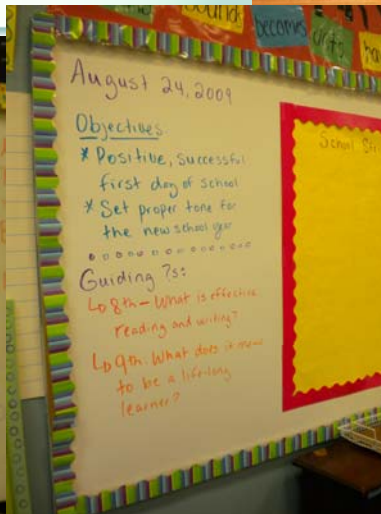 sounds
becomes
units
August 24, 2009
Objectives
* Positive, Successful
first day of School
* Set proper tone for
the new school year
Guiding ?s:
↳ 8th - What is effective
reading and writing?
↳ 9th. What does it mean
to be a life-long
learner?
School